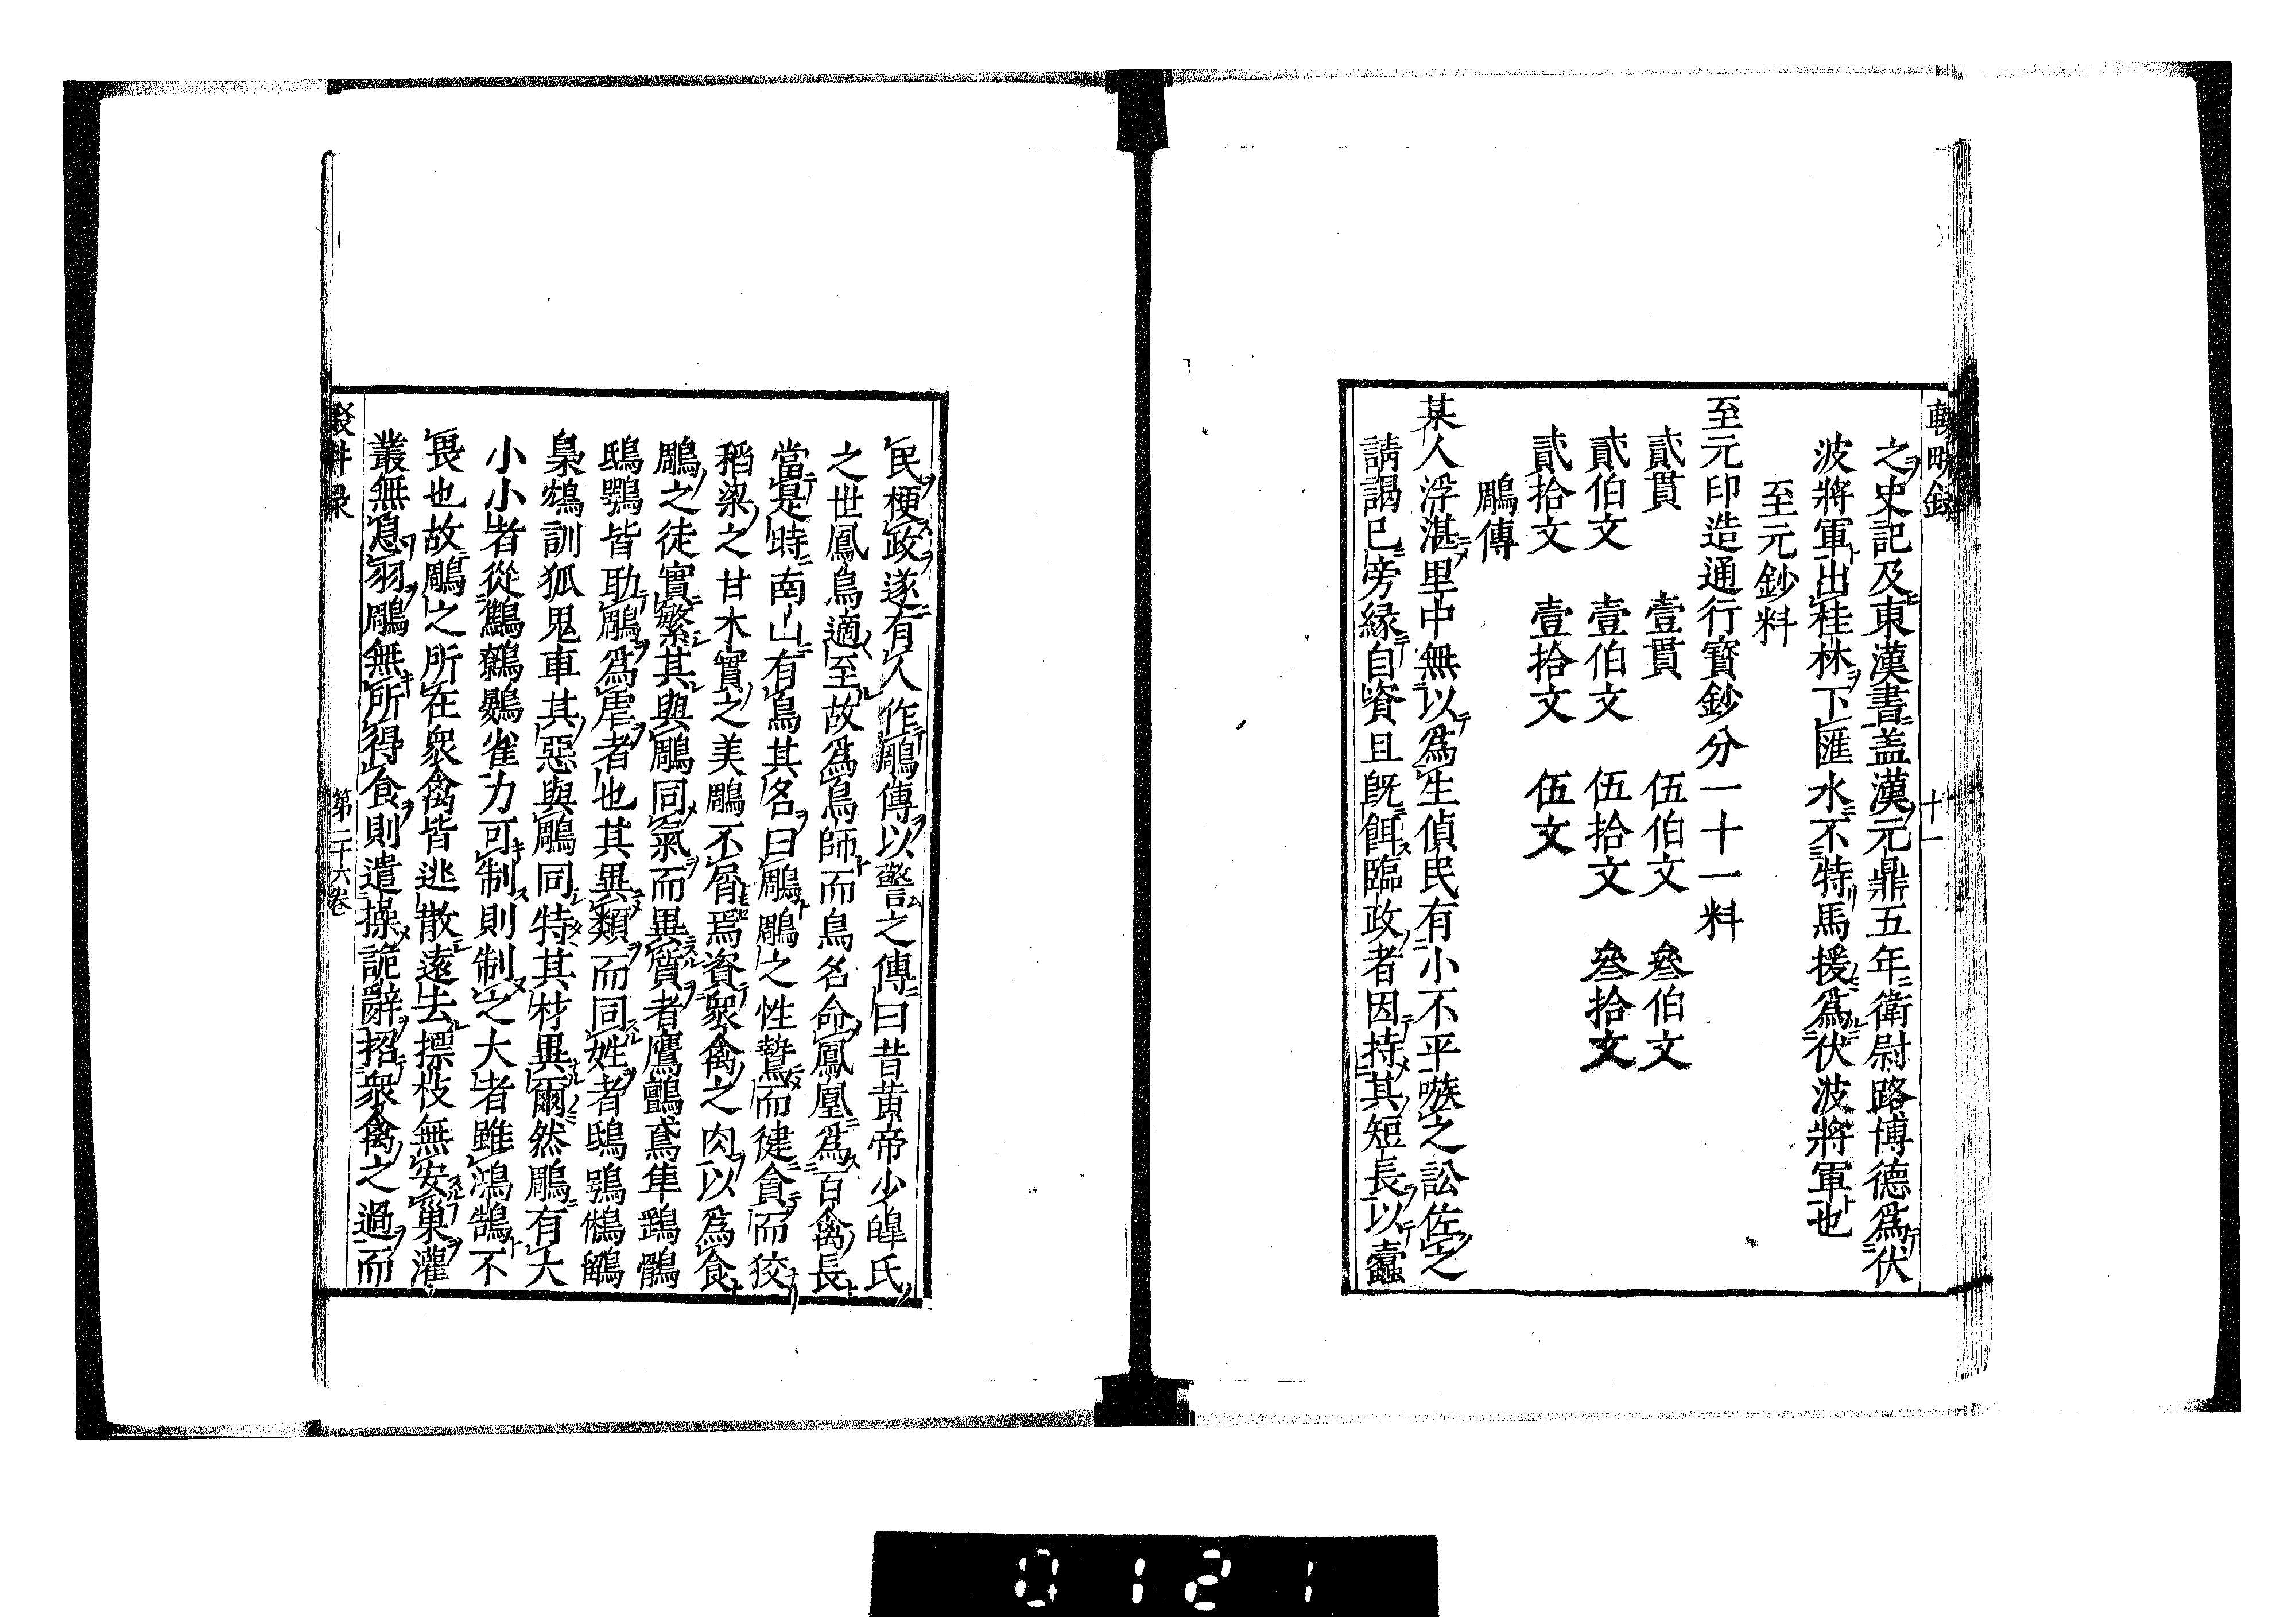 輟畊錄 十一
之史記及東漢書盖漢元鼎五年衛尉路博德爲伏
波將軍出桂林下匯水不特馬援爲伏波將軍也
至元鈔料
至元印造通行寳鈔分一十一料
貳貫 壹貫 伍伯文 叄伯文
貳伯文 壹伯文 伍拾文 叄拾文
貳拾文 壹拾文 伍文
鵰傳
某人浮湛里中無以爲生偵民有小不平嗾之訟佐之
請謁已旁緣自資且旣餌臨政者因持其短長以蠹
民梗政遂有人作鵰傳以警之傳曰昔黄帝少皥氏
之世鳳鳥適至故爲鳥師而鳥名命鳳凰爲百禽長
當是時南山有鳥其名曰鵰鵰之性鷙而健貪而狡
稻粱之甘木實之美鵰不屑焉資衆禽之肉以爲食
鵰之徒實繁其與鵰同氣而異質者鷹鸇鳶隼鸅鶻
鴟鴞皆助鵰爲虐者也其異類而同姓者鴟鴞鵂鶹
梟鵵訓狐鬼車其惡與鵰同特其材異爾然鵰有大
小小者從鷦鷯鷃雀力可制則制之大者雖鴻鵠不
畏也故鵰之所在衆禽皆逃散遠去摽枝無安巢灌
叢無息羽鵰無所得食則遣操詭辭招衆禽之過而
輟畊录 第二十六卷
0121